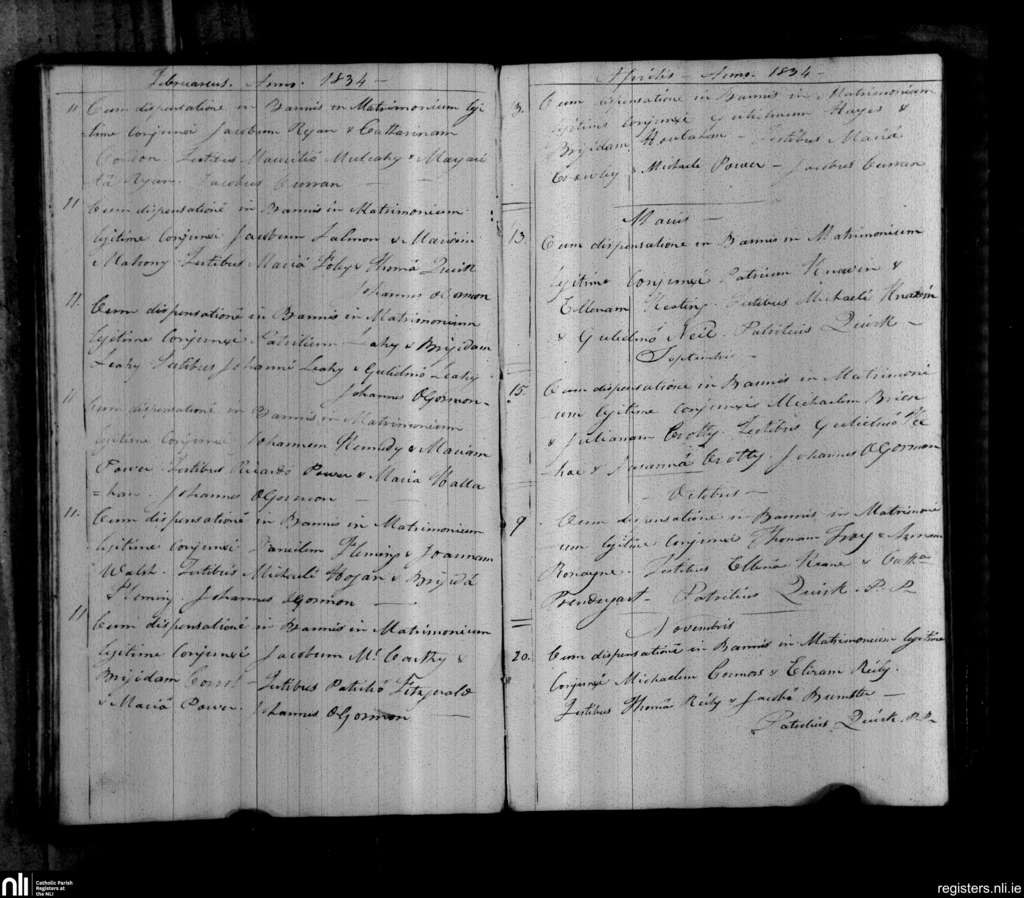 Februarius. Anno. 1834 -
11 Cum dispensatione in Bannis in Matrimonium legi
time Conjunxi Jacobum Ryan & Catharinam
Condon. Testibus Mauritio Mulcahy & Margari
tâ Ryan. Jacobus Curran
11 Cum dispensatione in Bannis in Matrimonium
legitime Conjunxi Jacobum Salmon & Mariam
Mahony. Testibus Mariâ Foley & Thomâ Quirk
Johannes OGormon
11. Cum dispensatione in Bannis in Matrimonium
legitime Conjunxi Leahy & Brijidam
Leahy Testibus Johanne Leahy & Gulielmo Leahy.
Johannes OGormon -
11 Cum dispensatione in Bannis in Matrimonium
legitime Conjunxi Johannem Kennedy & Mariam
Power. Testibus Ricardo Power & Maria Halla
=han. Johannes OGormon -
11. Cum dispensatione in Bannis in Matrimonium
legitime Conjunxi Fleming & Joannam
Walsh. Testibus Michaele Hogan & Brijidâ
Fleming. Johannes OGormon -
11 Cum dispensatione in Bannis in Matrimonium
legitime Conjunxi Jacobum Mc Carthy &
Brijidam Testibus Patricio Fitzgerald
& Mariâ Power. Johannes OGormon -
Aprilis - Anno. 1834 -
3. Cum dispensatione in Bannis in Matrimonium
legitime Conjunxi Gulielmum Hayes &
Brijidam Houlahan - Testibus Mariâ
Crowley & Michaele Power - Jacobus Curran
Maius -
13. Cum dispensatione in Bannis in Matrimonium
legitime Conjunxi Patricium &
Ellenam Keating. Testibus Michaele
& Gulielmo Neil. Patritius Quirk -
Septembris -
15. Cum dispensatione in Bannis in Matrimoni
um legitime Conjunxi Michaelem Brien
& Julianam Crotty. Testibus Gulielmo Ke
hoe & Susannâ Crotty. Johannes OGormon
- Octobris -
9 Cum dispensatione in Bannis in Matrimoni
um legitime Conjunxi Thomam Troy & Annam
Ronayne. Testibus Ellena Keane & Cath:a
Prendergast - Patritius Quirk. P.P.
Novembris
20. Cum dispensatione in Bannis in Matrimonium legitime
Conjunxi Michaelem Connors & Elizam Reily.
Testibus Thomâ Reily & Jacobo -
Patritius Quirk. P.P.
nli
Catholic Parish
Registers at
the NLI
registers.nli.ie